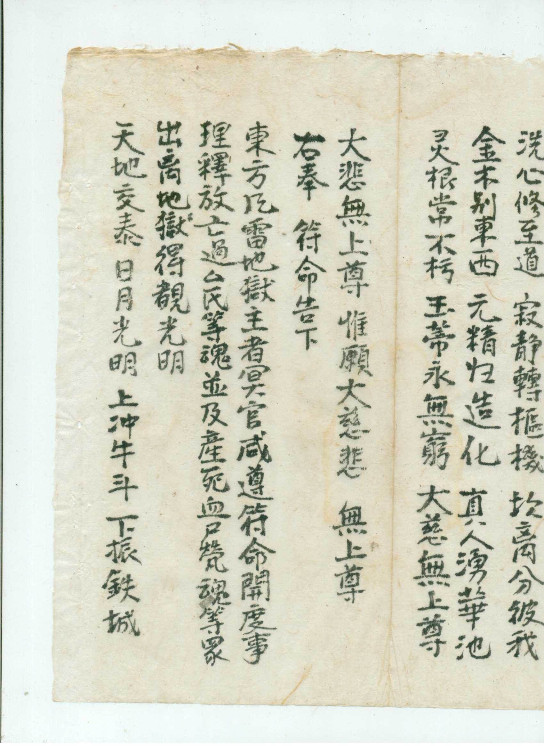 洗心修至道　寂静轉樞機　坎离分彼我
金木别東西　元精归造化　真人湧華池
灵根常不朽　玉蒂永無窮　大慈無上尊
大悲無上尊　惟願大慈悲　無上尊
右奉　符命告下
東方风雷地獄主者冥官咸遵符命開度事
理釋放亡過厶氏等魂並及產死血尸㷀魂等眾
出离地獄得覩光明
天地交泰　日月光明　上冲牛斗　下振鉄城